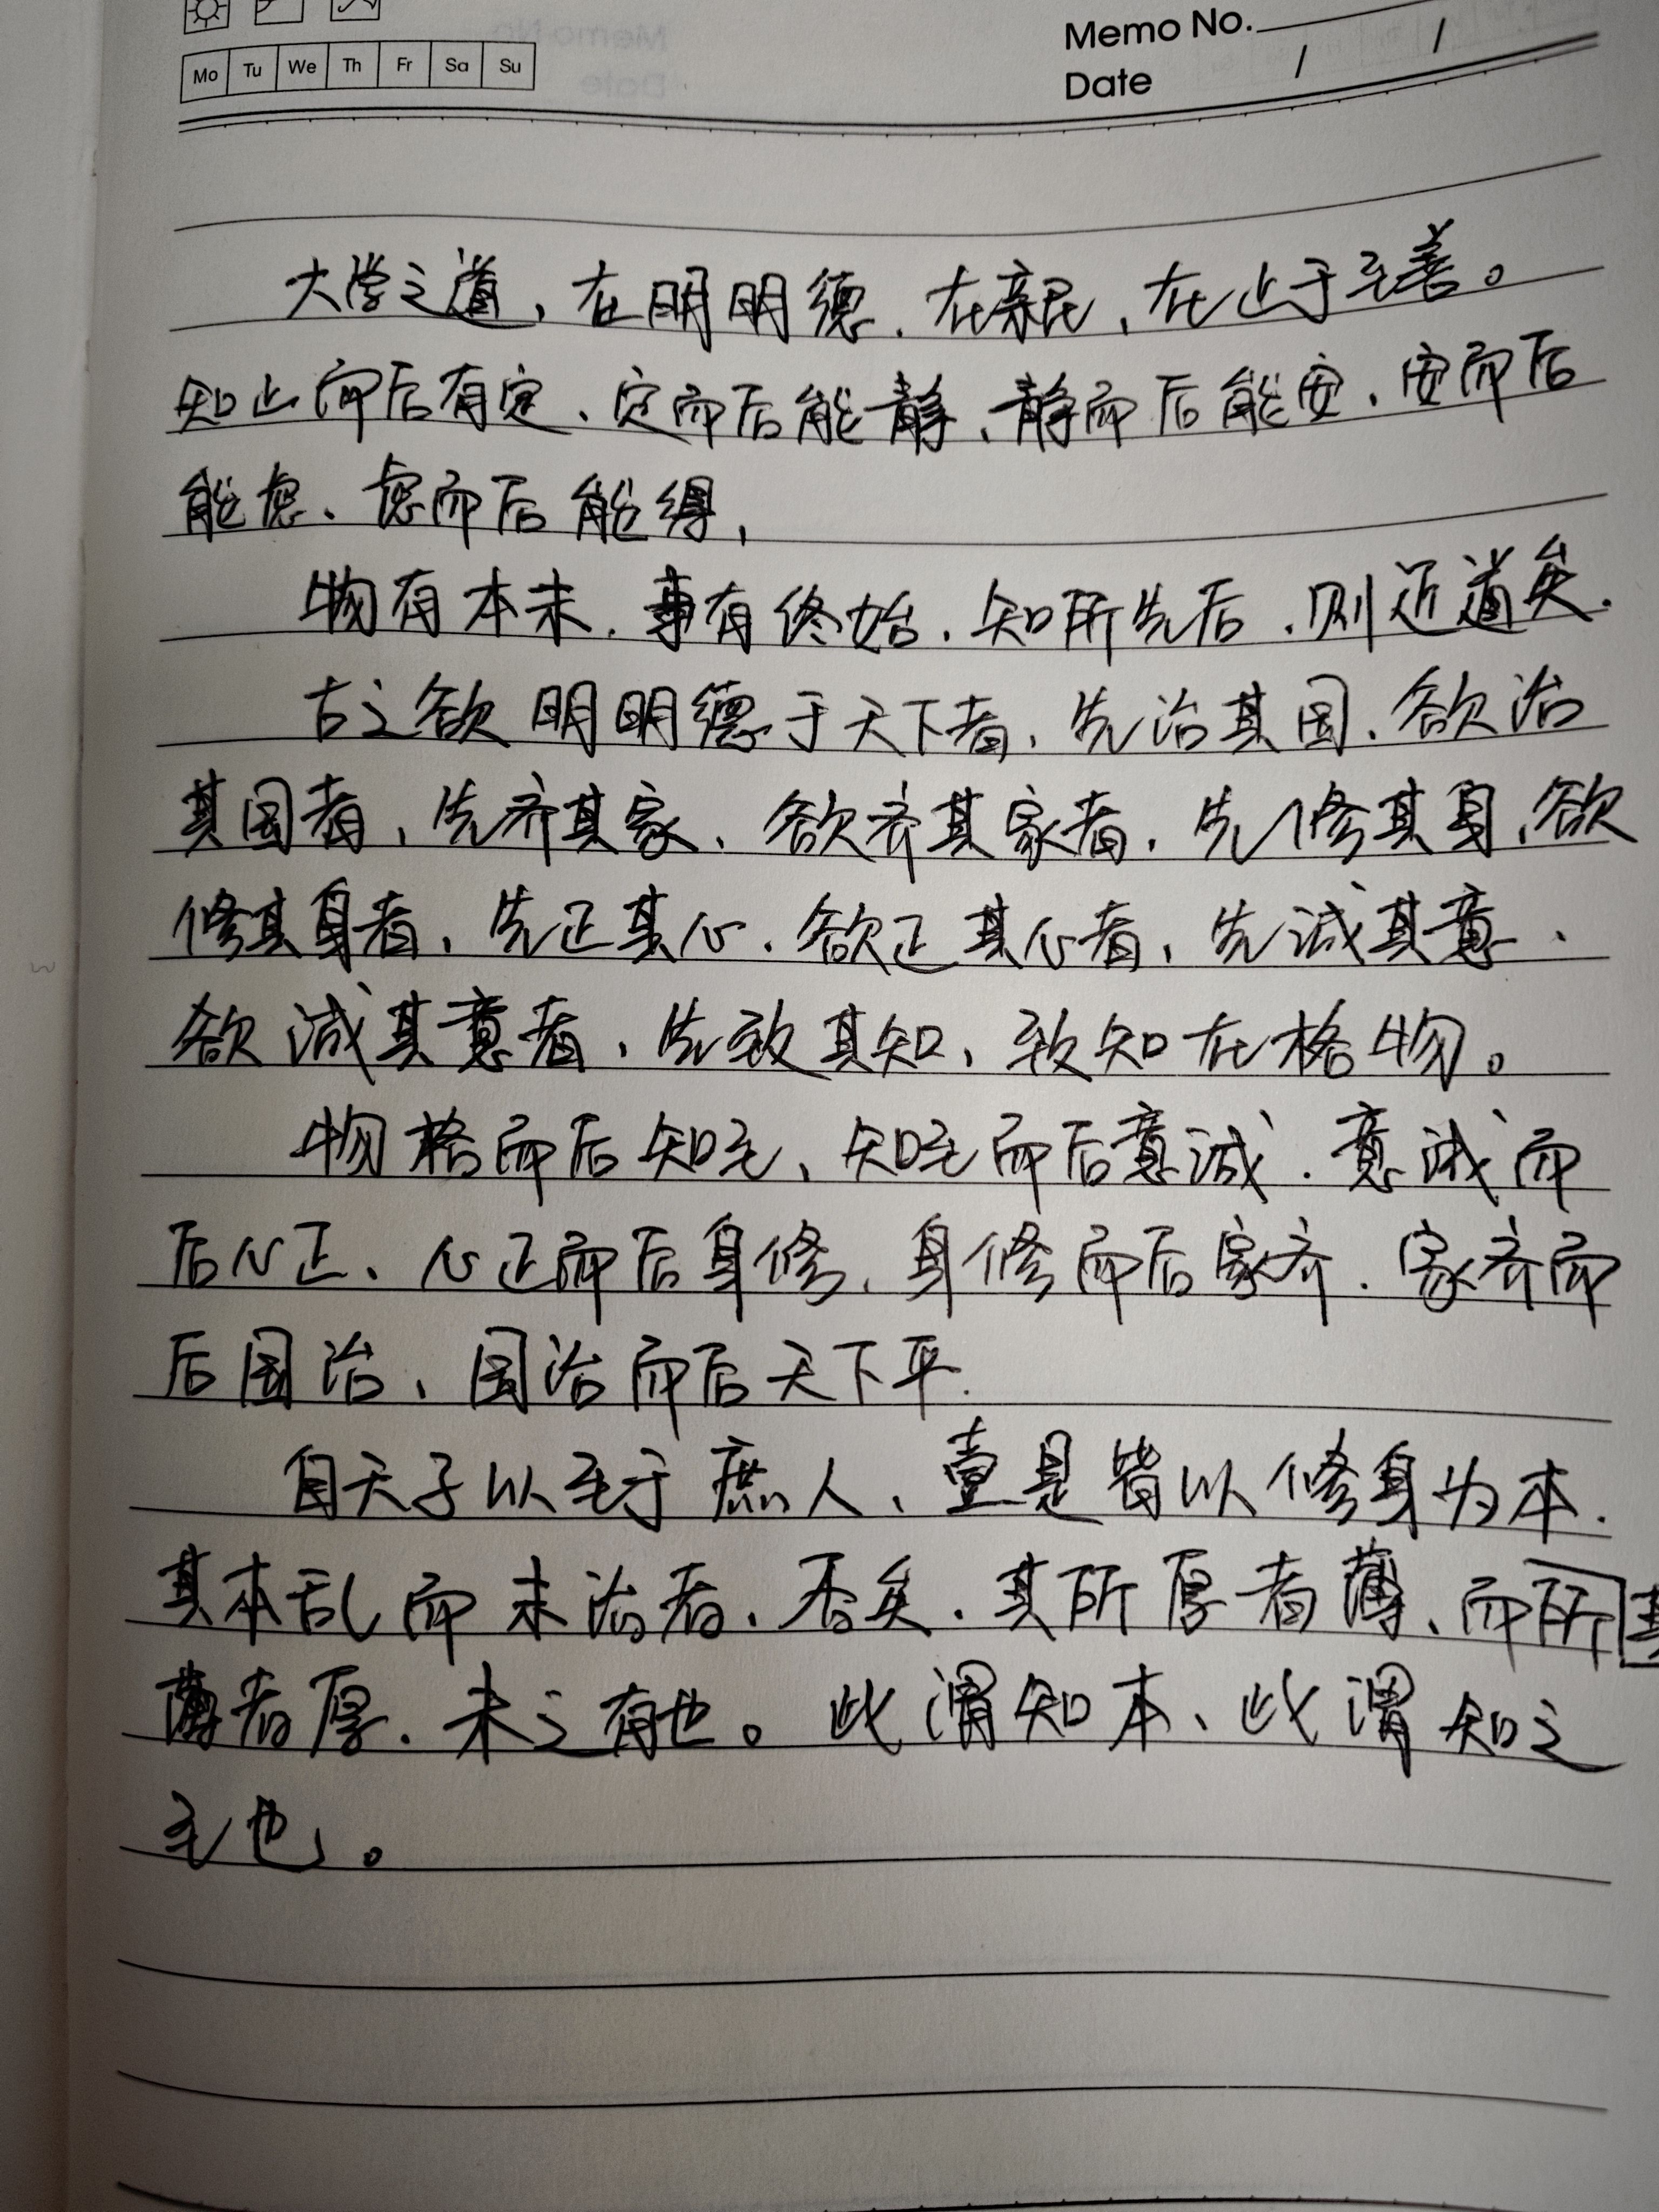 Memo No.
Mo Tu We Th Fr Sa Su
Date / /
大学之道，在明明德、在亲民、在止于至善。
知止而后有定、定而后能静、静而后能安、安而后
能虑、虑而后能得，
物有本末、事有终始、知所先后、则近道矣.
古之欲明明德于天下者，先治其国、欲治
其国者，先齐其家、欲齐其家者，先修其身、欲
修其身者，先正其心、欲正其心者，先诚其意、
欲诚其意者，先致其知、致知在格物。
物格而后知至、知至而后意诚、意诚而
后心正、心正而后身修、身修而后家齐、家齐而
后国治、国治而后天下平.
自天子以至于庶人、壹是皆以修身为本.
其本乱而末治者、否矣、其所厚者薄、而所其
薄者厚、未之有也。此谓知本、此谓知之
至也。